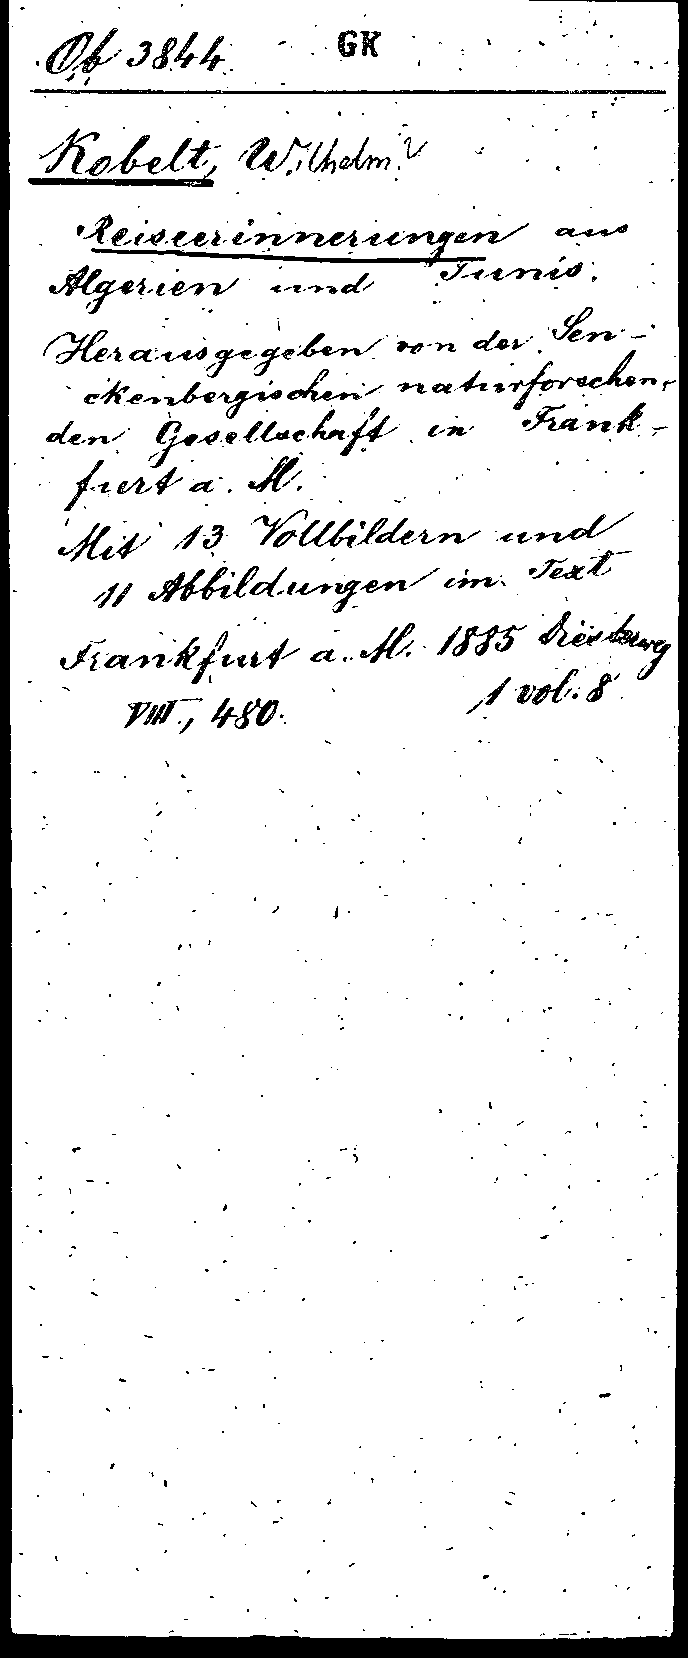 Ob 3844 GK
Kobelt, Wilhelm
Reiseerinnerungen aus
Algerien und Tunis.
Herausgegeben von der Sen-
ckenbergischen naturforschen-
den Gesellschaft in Frank-
furt a. M.
Mit 13 Vollbildern und
11 Abbildungen im Text
Frankfurt a. M. 1885 Diesterweg
VIII, 480. 1 vol. 8